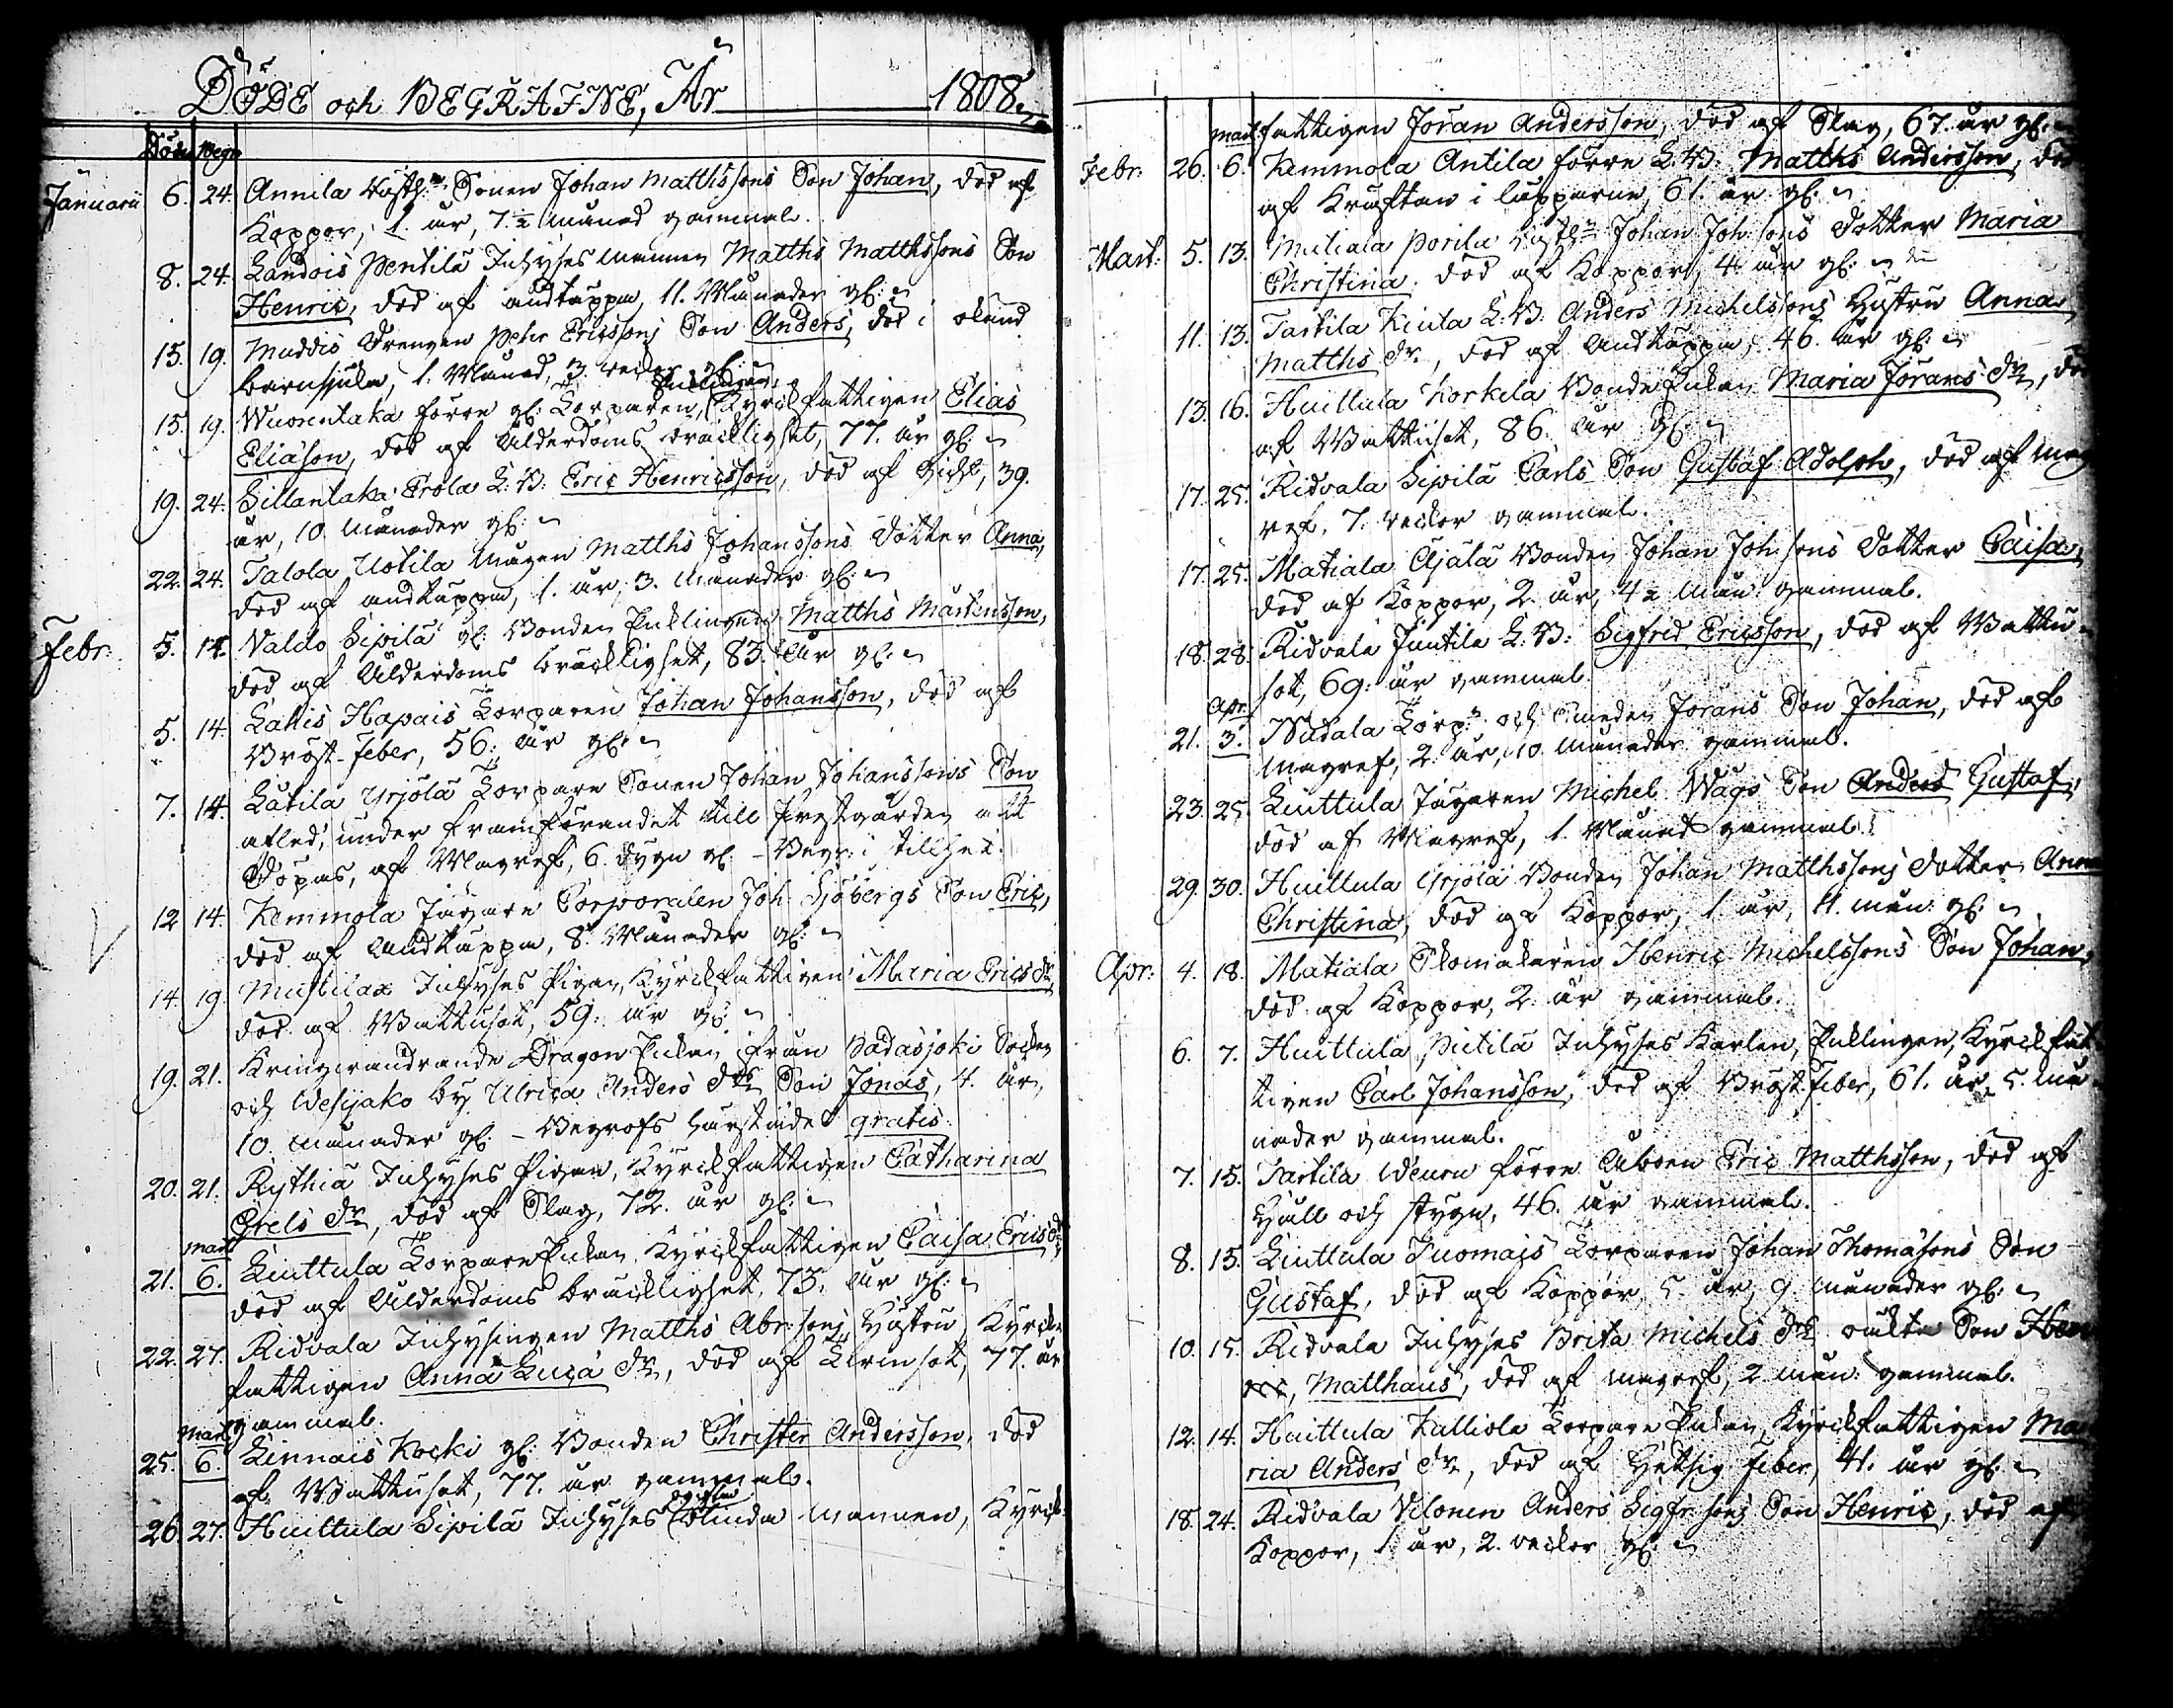 DÖDE och BEGRAFNE, År 1808.
Döde Begr.
Januarii 6. 24. Annila Sonen Johan Matthssons Son Johan, död af
Koppor, 1. år, 7.½ månad gammal.
8. 24. Landois Pentilä Inhyses mannen Matths Matthssons Son
Henric, död af andtäppa, 11. Månader gl:
15. 19. Muddis Drengen Pehr Ericssons Son Anders, död i okänd
barnsjuka, 1. Månad, 3. veckor gl:
15. 19. Wuorentaka förre gl: Torparen, Enklingen, Kyrckfattigen Elias
Eliäson, död af Ålderdoms bräcklighet, 77. år gl:
19. 24. Sillantaka Erola L: B: Eric Henricsson, död af Gickt, 39.
år, 10. Månader gl:
22. 24. Talola Uotila Mågen Matths Johanssons Dotter Anna,
död af andtäppa, 1. år, 3. Månader gl:
Febr: 5. 14. Naldo Sipilä gl: Bonden Enklingen Matths Mårtensson,
död af Ålderdoms bräcklighet, 83. år gl:
5. 14. Lahis Hapais Torparen Johan Johansson, död af
Bröst-feber, 56. år gl:
7. 14. Lätilä Yrjölä Torpare Sonen Johan Johanssons Son
afled, under framförandet till Prestgården att
Döpas, af Magref, 6. dygn gl. - Begr: i stillhet.
12 14. Kemmola Jägare Corporalen Joh. Sjöbergs Son Eric,
död af Andtäppa, 8. Månader gl:
14. 19. Mustilax Inhyses Pigan, Kyrckfattigen Maria Erics dr,
död af Wattusot, 59. år gl:
19. 21. Kringvandrande Dragon Enkan från Padasjoki Socken
och Wesijako by Ulrica Anders drs Son Jonas, 4. år,
10. månader gl: - Begrofs härstädes gratis.
20. 21. Rythiä Inhyses Pigan, Kyrckfattigen Catharina
Grels dr, död af Slag, 72. år gl:
Mart.
21. 6. Luttula Torpare Enkan, Kyrckfattigen Caisa Erics dr,
död af Ålderdoms bräcklighet, 73. år gl:
22. 27. Ridvala Inhysingen Matths Abr:sons Hustru, Kyrck-
fattigen Anna Luca dr, död af 77. år
gammal.
Mart.
25. 6. Lennais Kocki gl: Bonden Christer Andersson, död
af Wattusot, 77. år gammal.
26. 27. Huittula Sipilä Inhyses blinda mannen, Kyrck-
Mart. fattigen Jöran Andersson, död af Slag, 67. år gl:
Febr: 26. 6. Kemmola Antila förre L: B: Matths Andersson, död
af Kräftan i läpparne, 61. år gl:
Mart: 5. 13. Mutiala Porila Johan Joh:sons Dotter Maria
Christina, död af Koppor, 4. år gl:
11. 13. Tartila Kiuta L: B: Anders Michelssons Hustru Anna
Matths dr, död af Andtäppa, 46. år gl:
13. 16. Huittula Korkela Bonde Enkan Maria Jörans dr, död
af Wattusot, 86. år gl:
17. 25. Ridvala Sipilä Carls Son Gustaf Adolph, död af mag
ref, 7. veckor gammal.
17. 25. Matiala Äjälä Bonden Johan Joh:sons Dotter Caisa,
död af Koppor, 2. år, 4½ mån: gammal.
18. 28. Ridvala Juntila L: B: Sigfrid Ericsson, död af Wattu-
sot, 69. år gammal.
Apr.
21. 3. Nudala Torp: och Smeden Jörans Son Johan, död af
magref, 2. år, 10. månader gammal.
23. 25. Luttula Jägaren Michel Wågs Son Anders Gustaf,
död af Magref, 1. Månad gammal.
29. 30. Huittula Yrjölä Bonden Johan Matthssons Dotter Anna
Christina, död af Koppor, 1. år, 11. mån: gl:
Apr: 4. 18. Matiala Skomakaren Henric Michelssons Son Johan,
död af Koppor, 2. år gammal.
6. 7. Huittula Pietilä Inhyses Karlen, Enklingen, Kyrckfat
tigen Carl Johansson, död af Bröst-feber, 61. år, 5. må-
nader gammal.
7. 15. Tartila Weuru förre Åboen Eric Matthsson, död af
Håll och styng, 46. år gammal.
8. 15. Luttula Tuomais Torparen Johan Thomäsons Son
Gustaf, död af Koppor, 5. år, 9. månader gl:
10. 15. Ridvala Inhyses Brita Michels drs oäkta Son
Matthæus, död af magref, 2. mån: gammal.
12. 14. Huittula Kalliola Torpare Enkan, Kyrckfattigen Ma
ria Anders dr, död af Hetsig feber, 41. år gl:
18. 24. Ridvala Vilonen Anders Sigfr:sons Son Henric, död af
Koppor, 1. år, 2. veckor gl: